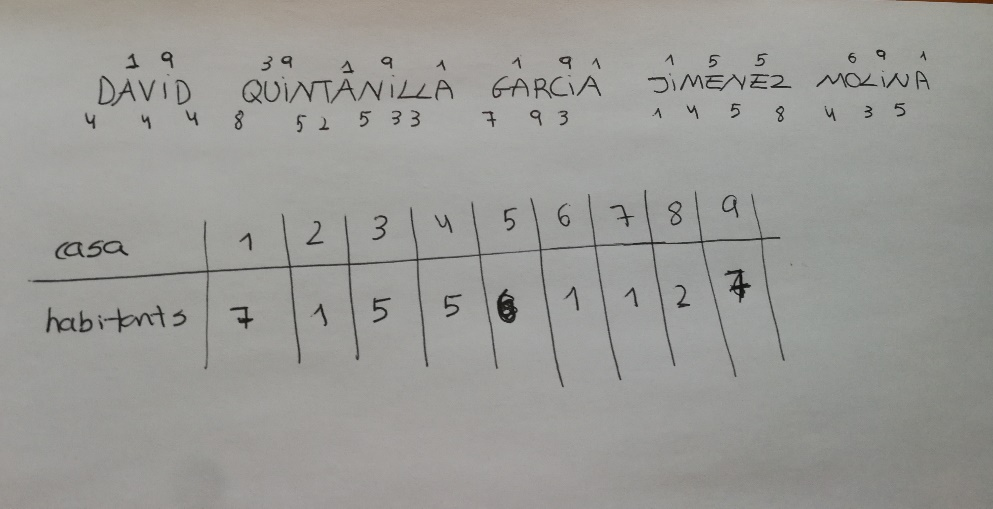 1 9 3 9 1 9 1 1 9 1 1 5 5 6 9 1
DAVID QUINTANILLA GARCIA JIMENEZ MOLINA
4 4 4 8 5 2 5 3 3 7 9 3 1 4 5 8 4 3 5
casa 1 2 3 4 5 6 7 8 9
habitants 7 1 5 5 6 1 1 2 7